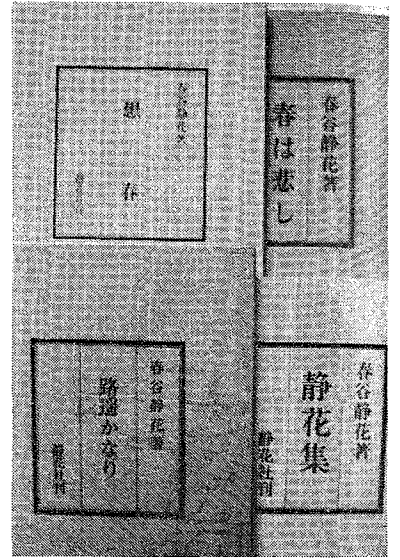 春谷静花著
春は悲し
春谷静花著
想春
春谷静花著
静花集
静花社刊
春谷静花著
路遥かなり
静花社刊